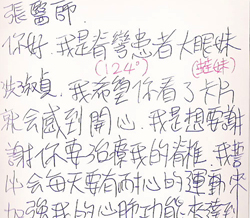 張醫師
你好.我是脊彎患者大眼妹
(124°) (蛙妹)
淑貞.我希望你看了卡片
就会感到開心.我是想要謝
謝你要治療我的脊椎.我
也会每天要有耐心的運動來
加強我的心肺功能